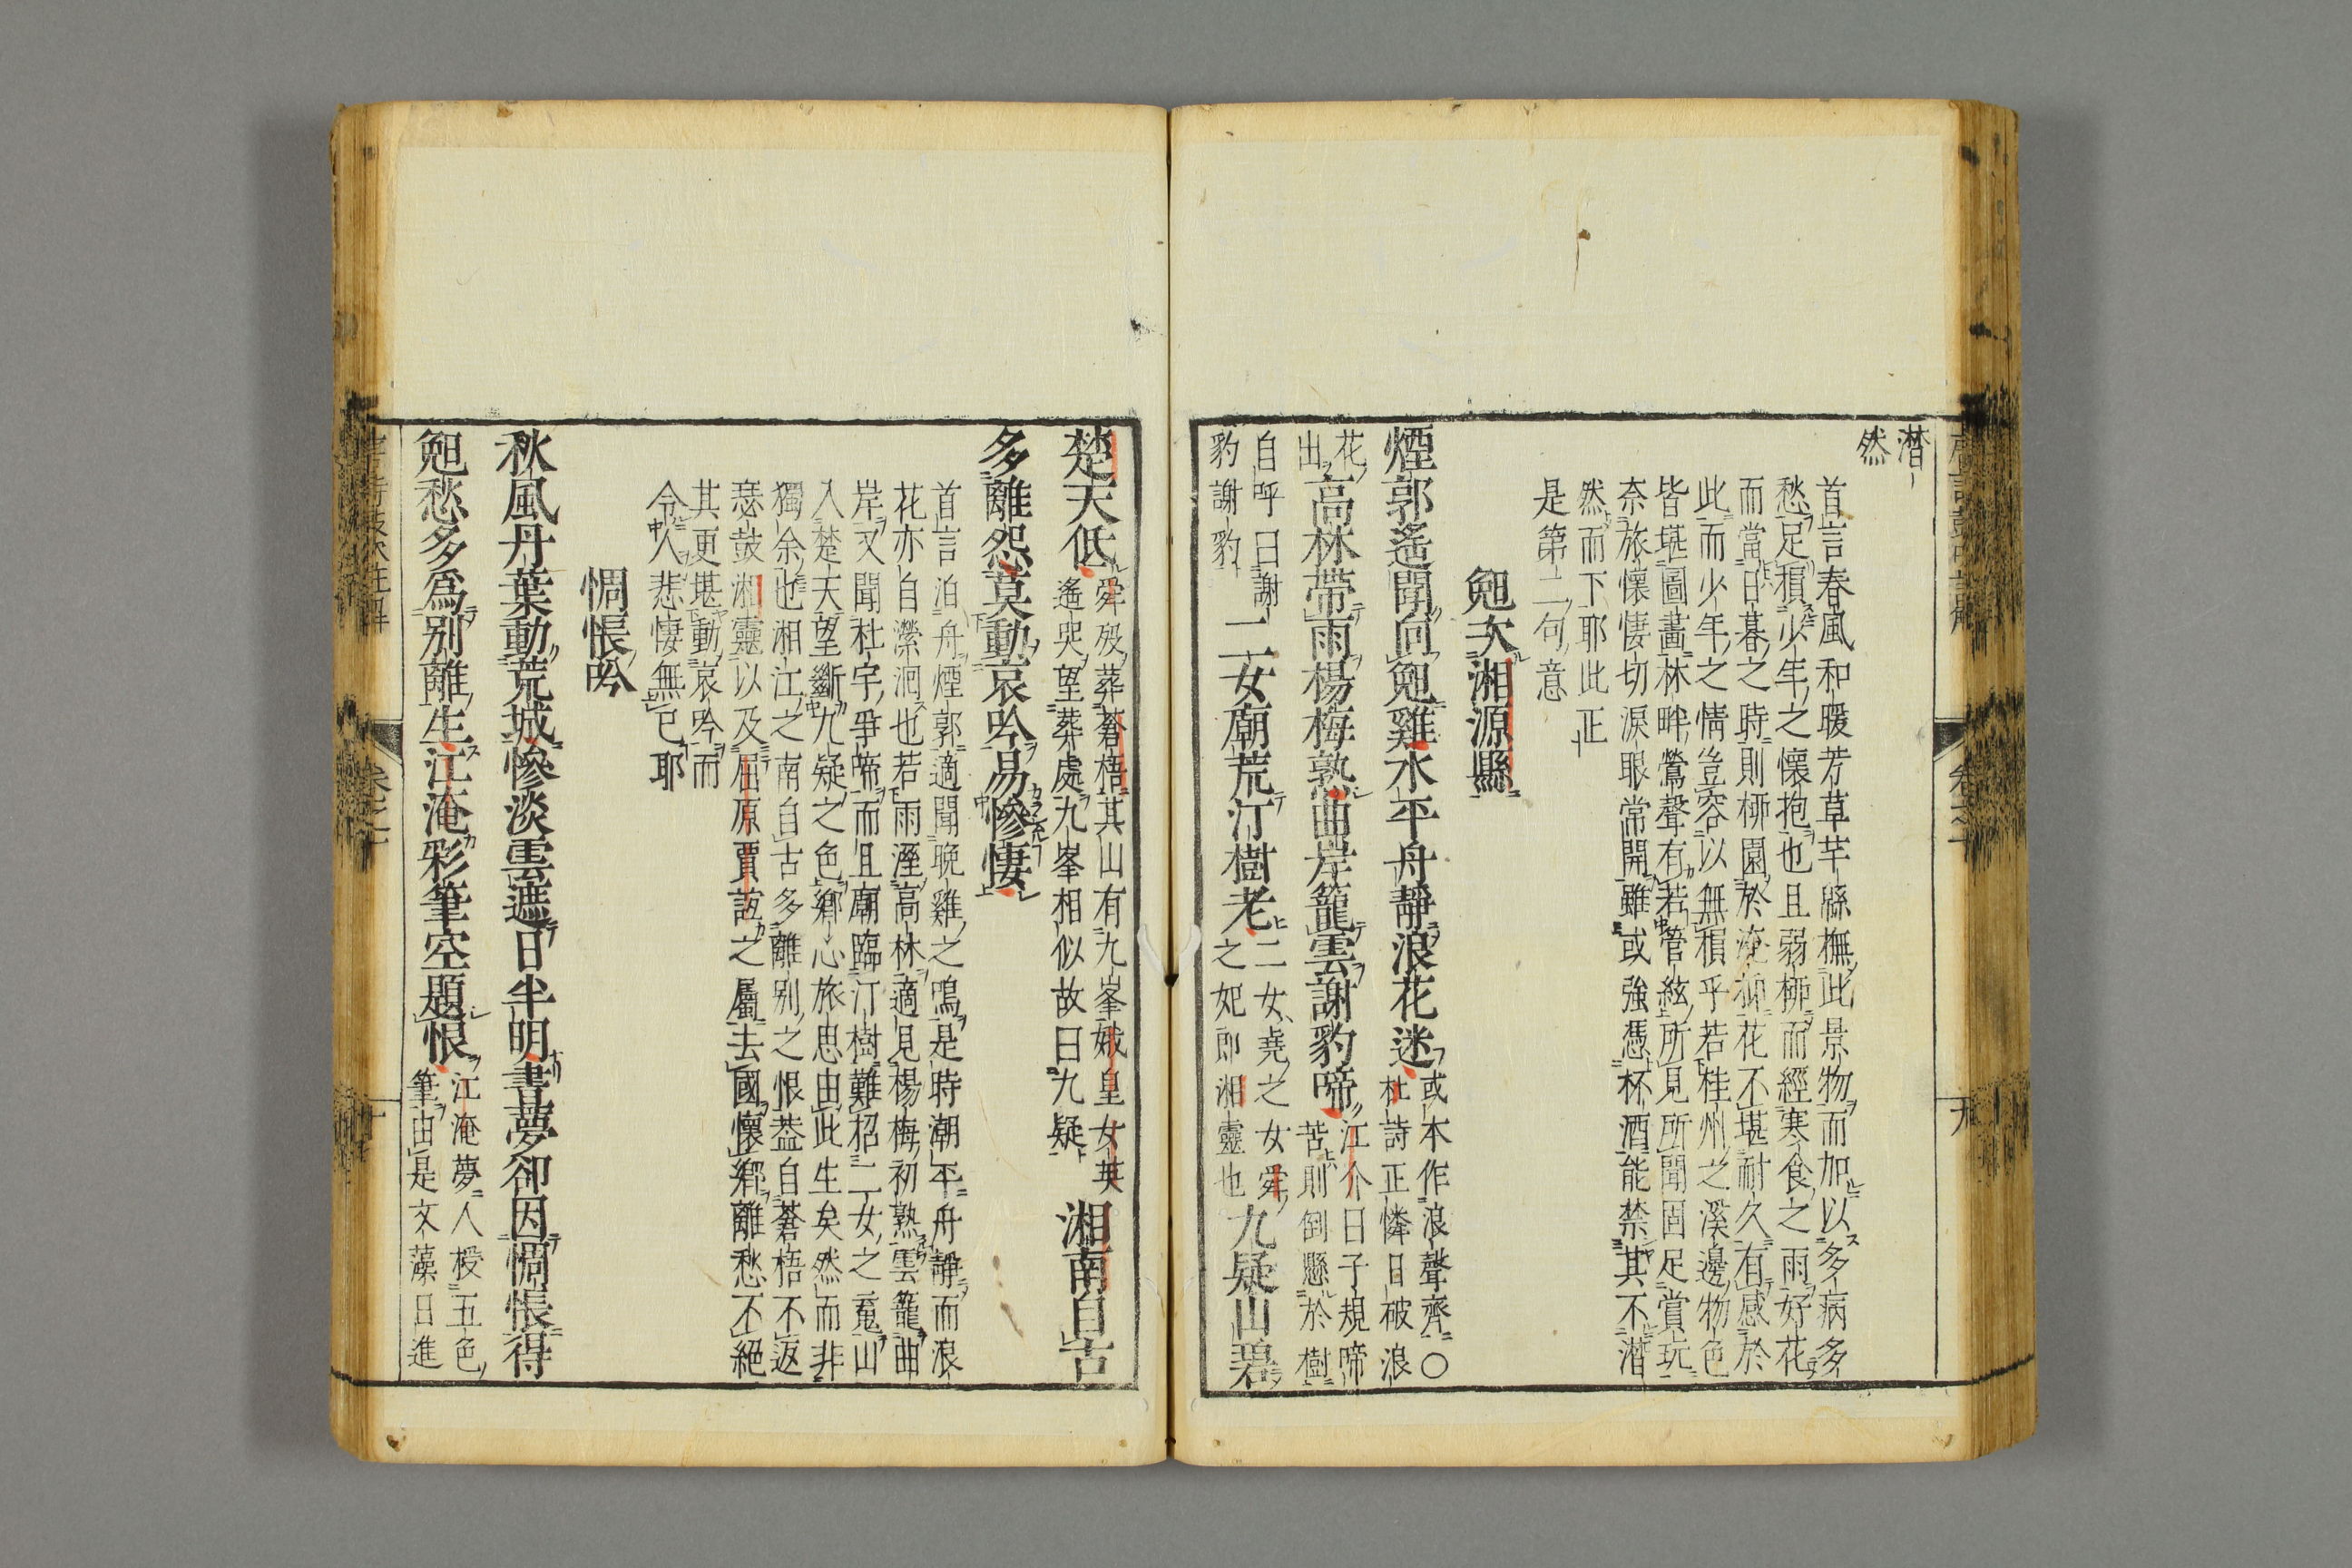 潛
然
首言春風和暖芳草芊緜撫此景物而加以多病多
愁足損少年之懷抱也且弱柳而經寒食之雨好花
而當日暮之時則柳園於淹抑花不堪耐久有感於
此而少年之情豈容以無損乎若桂州之溪邊物色
皆堪圖畫林畔鶯聲有若管絃所見所聞固足賞玩
奈旅懷悽切淚眼常開雖或強憑杯酒能禁其不潛
然而下耶此正
是第二句意
晚次湘源縣
煙郭遙聞向晚雞水平舟靜浪花迷
或本作浪聲齊○
杜詩正憐日破浪
花
出
高林帶雨楊梅熟曲岸籠雲謝豹啼
江介曰子規啼
苦則倒懸於樹
自呼曰謝
豹謝豹
二女廟荒汀樹老
二女堯之女舜
之妃即湘靈也
九疑山碧
楚天低
舜歿葬蒼梧其山有九峯娥皇女英
遙哭望葬處九峯相似故曰九疑
湘南自古
多離怨莫動哀吟易慘悽
首言泊舟煙郭適聞晚雞之鳴是時潮平舟靜而浪
花亦自瀠洄也若雨溼高林適見楊梅初熟雲籠曲
岸又聞杜宇爭啼而且廟臨汀樹難招二女之䰟山
入楚天望斷九疑之色鄉心旅思由此生矣然而非
獨余也湘江之南自古多離別之恨葢自蒼梧不返
瑟鼓湘靈以及屈原賈誼之屬去國懷鄉離愁不絕
其更堪動哀吟而
令人悲悽無已耶
惆悵吟
秋風丹葉動荒城慘淡雲遮日半明晝夢卻因惆悵得
晚愁多爲別離生江淹彩筆空題恨
江淹夢人授五色
筆由是文藻日進